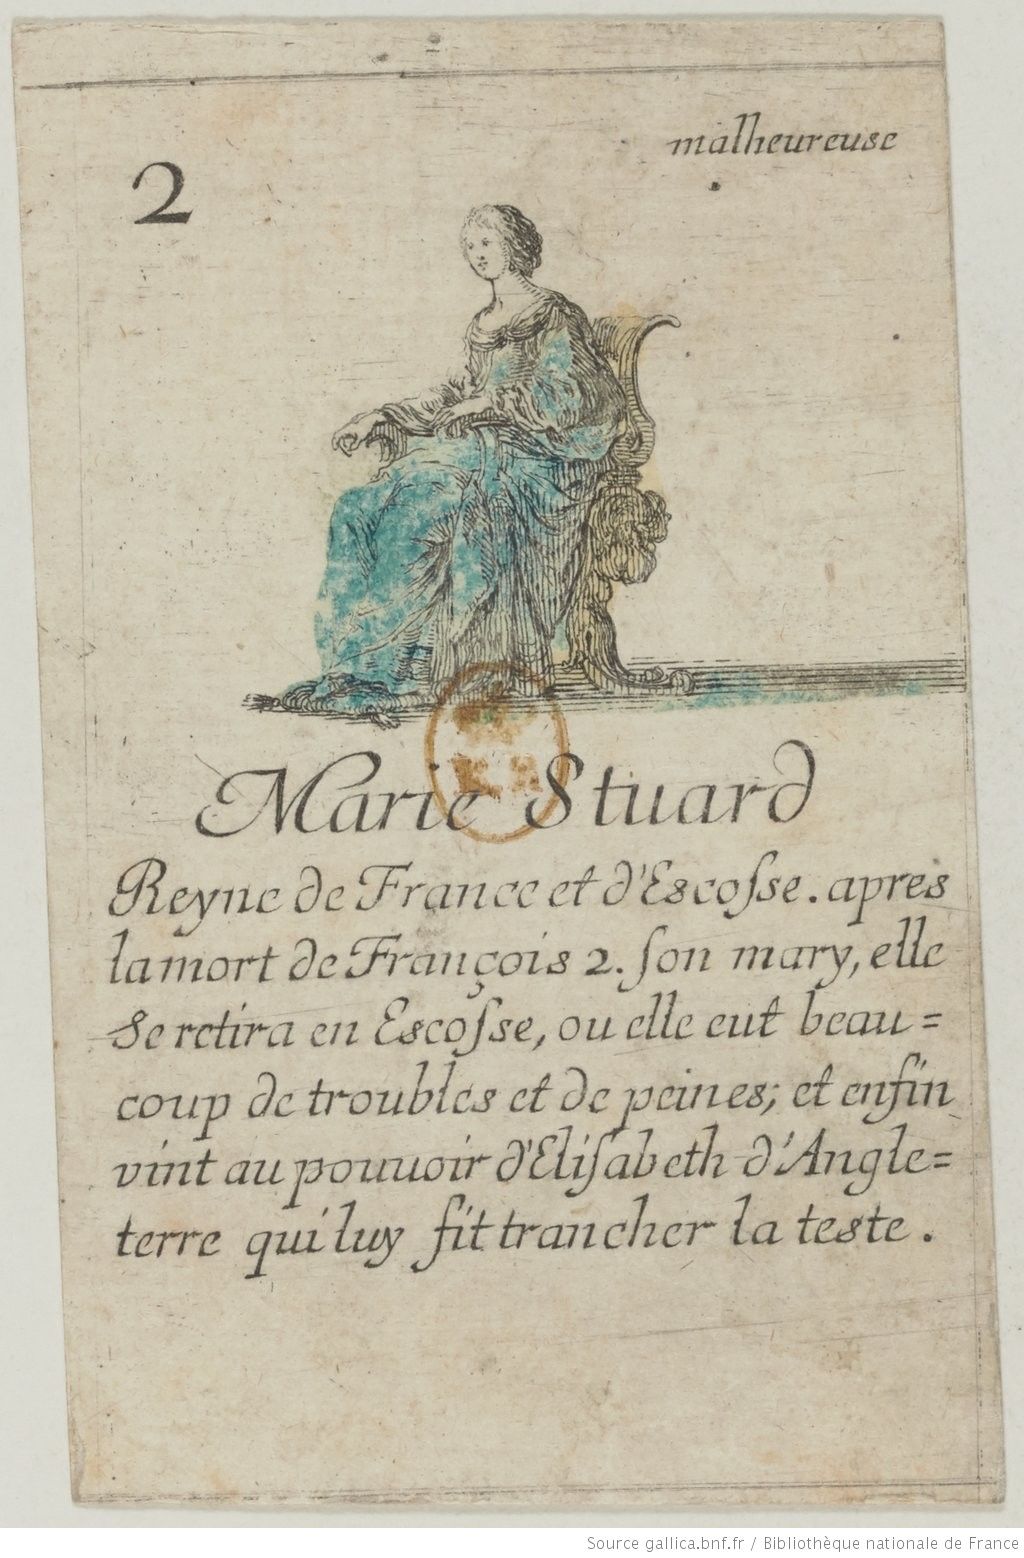 2
malheureuse
Marie Stuard
Reyne de France et d'Escoſse. apres
la mort de François 2. ſon mary, elle
Se retira en Escoſse, ou elle eut beau=
coup de troubles et de peines; et enfin
vint au pouuoir d'Eliſabeth d'Angle=
terre qui luy fit trancher la teste.
Source gallica.bnf.fr / Bibliothèque nationale de France